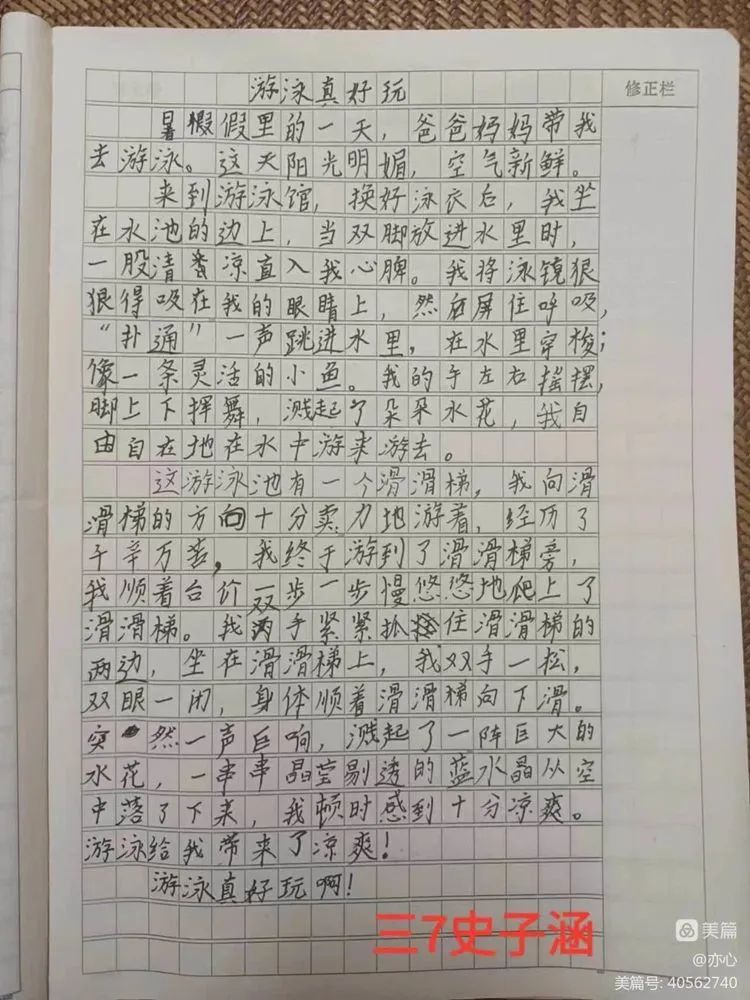 游泳真好玩
修正栏
暑假假里的一天，爸爸妈妈带我
去游泳。这天阳光明媚，空气新鲜。
来到游泳馆，换好泳衣后，我坐
在水池的边上，当双脚放进水里时，
一股清凉直入我心脾。我将泳镜狠
狠得吸在我的眼睛上，然后屏住呼吸，
“扑通”一声跳进水里，在水里穿梭；
像一条灵活的小鱼。我的手左右摇摆，
脚上下挥舞，溅起了朵朵水花，我自
由自在地在水中游来游去。
这游泳池有一个滑滑梯，我向滑
滑梯的方向十分卖力地游着，经历了
千辛万苦，我终于游到了滑滑梯旁，
我顺着台价一步一步慢悠悠地爬上了
滑滑梯。我双手紧紧抓住滑滑梯的
两边，坐在滑滑梯上，我双手一松，
双眼一闭，身体顺着滑滑梯向下滑。
突然一声巨响，溅起了一阵巨大的
水花，一串串晶莹剔透的蓝水晶从空
中落了下来，我顿时感到十分凉爽。
游泳给我带来了凉爽！
游泳真好玩啊！
三7史子涵
美篇
@亦心
美篇号: 40562740